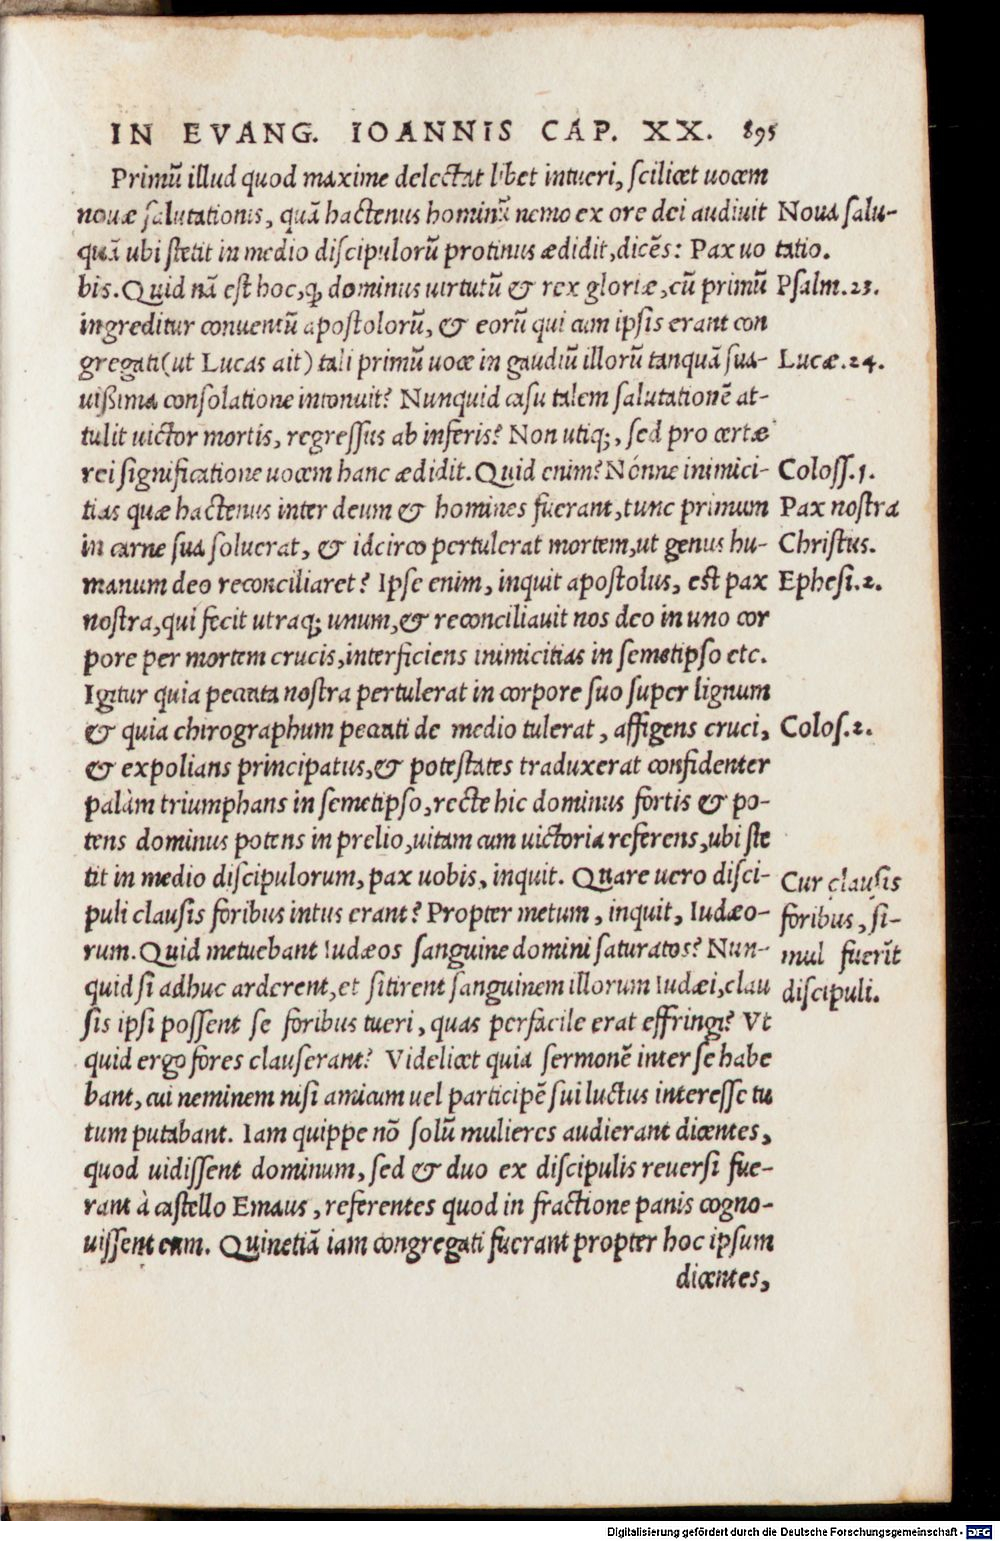 IN EVANG. IOANNIS CAP. XX. 895
Primū illud quod maxime delectat libet intueri, scilicet uocem
nouæ salutationis, quā hactenus hominū nemo ex ore dei audiuit
quā ubi stetit in medio discipulorū protinus ædidit, dicēs: Pax uo
bis. Quid nā est hoc, ꝙ dominus uirtutū & rex gloriæ, cū primū
ingreditur conuentū apostolorū, & eorū qui cum ipsis erant con
gregati (ut Lucas ait) tali primū uoce in gaudiū illorū tanquā sua-
uißima consolatione intonuit? Nunquid casu talem salutationē at-
tulit uictor mortis, regressus ab inferis? Non utiq;, sed pro certæ
rei significatione uocem hanc ædidit. Quid enim? Nónne inimici-
tias quæ hactenus inter deum & homines fuerant, tunc primum
in carne sua soluerat, & idcirco pertulerat mortem, ut genus hu-
manum deo reconciliaret? Ipse enim, inquit apostolus, est pax
nostra, qui fecit utraq; unum, & reconciliauit nos deo in uno cor
pore per mortem crucis, interficiens inimicitias in semetipso etc.
Igitur quia peccata nostra pertulerat in corpore suo super lignum
& quia chirographum peccati de medio tulerat, affigens cruci,
& expolians principatus, & potestates traduxerat confidenter
palàm triumphans in semetipso, recte hic dominus fortis & po-
tens dominus potens in prelio, uitam cum uictoria referens, ubi ste
tit in medio discipulorum, pax uobis, inquit. Quare uero disci-
puli clausis foribus intus erant? Propter metum, inquit, Iudæo-
rum. Quid metuebant Iudæos sanguine domini saturatos? Nun-
quid si adhuc arderent, et sitirent sanguinem illorum Iudæi, clau
sis ipsi possent se foribus tueri, quas perfacile erat effringi? Vt
quid ergo fores clauserant? Videlicet quia sermonē inter se habe
bant, cui neminem nisi amicum uel participē sui luctus interesse tu
tum putabant. Iam quippe nō solū mulieres audierant dicentes,
quod uidissent dominum, sed & duo ex discipulis reuersi fue-
rant à castello Emaus, referentes quod in fractione panis cogno-
uissent eum. Quinetiā iam congregati fuerant propter hoc ipsum
dicentes,
Noua salu-
tatio.
Psalm. 23.
Lucæ. 24.
Coloss. 1.
Pax nostra
Christus.
Ephesi. 2.
Colos. 2.
Cur clausis
foribus, si-
mul fuerīt
discipuli.
Digitalisierung gefördert durch die Deutsche Forschungsgemeinschaft - DFG